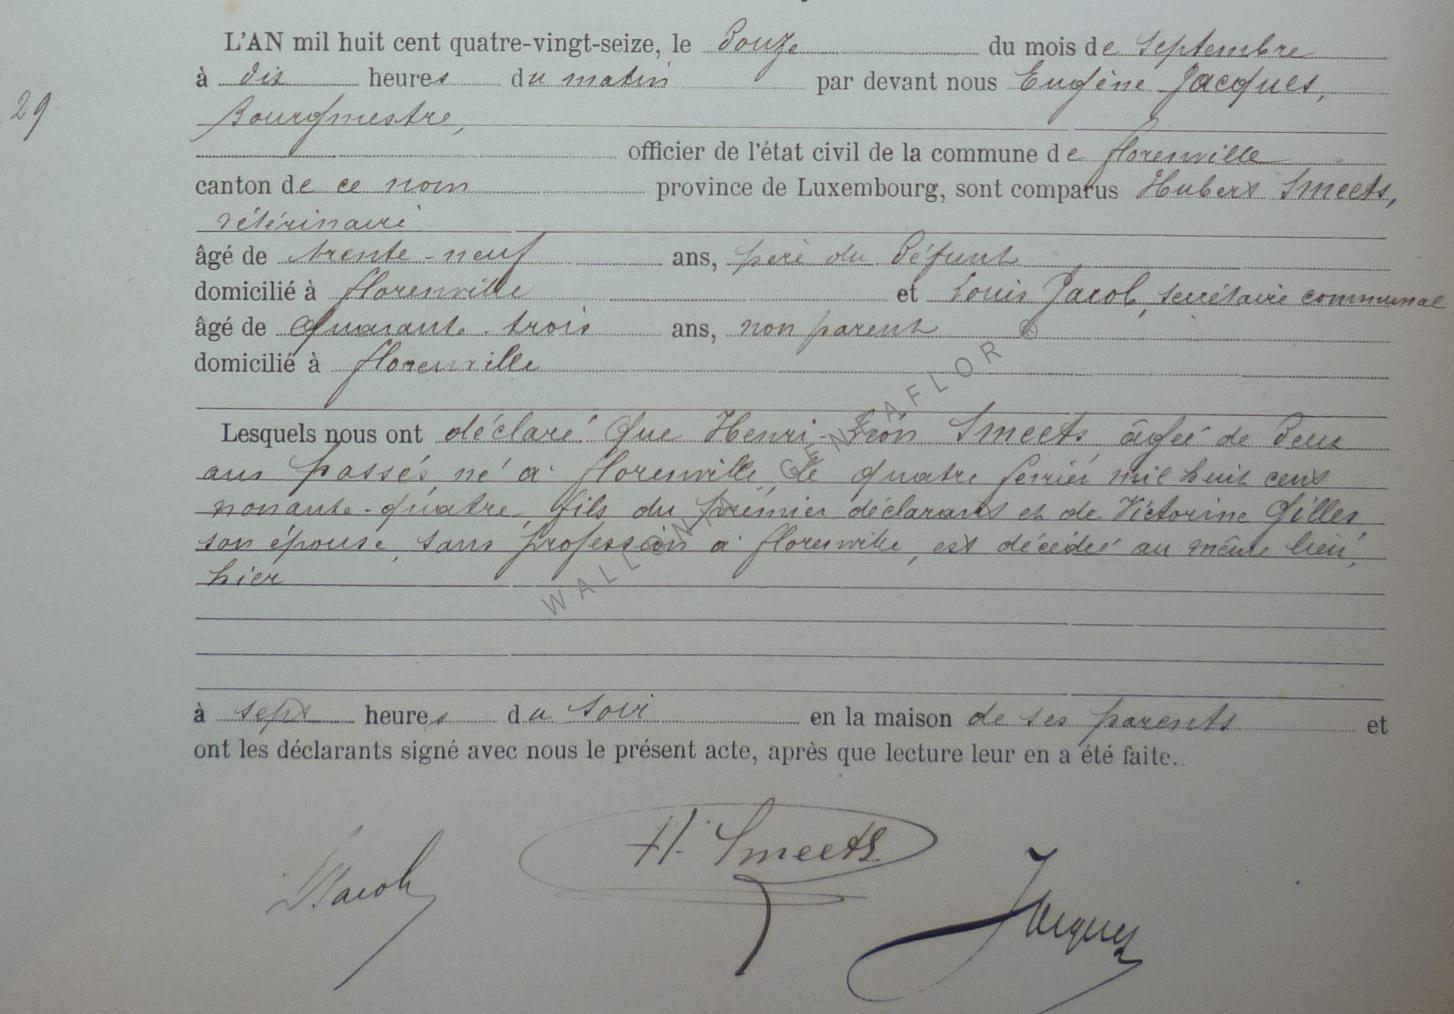 L'AN mil huit cent quatre-vingt-seize, le Douze du mois de Septembre
à dix heures du matin par devant nous Eugène Jacques,
29
Bourgmestre,
officier de l'état civil de la commune de florenville
canton de ce nom province de Luxembourg, sont comparus Hubert Smeets,
vétérinaire
âgé de trente-neuf ans, père du Défunt
domicilié à florenville et Louis Jacob, secrétaire communal
âgé de Quarante-trois ans, non parent
domicilié à florenville
Lesquels nous ont déclaré que Henri-Léon Smeets âgé de Deux
ans passés, né à florenville, le quatre février mil huit cent
nonante-quatre, fils du premier déclarant et de Victorine Gilles
son épouse, sans profession à florenville, est décédé au même lieu,
hier
à sept heures du soir en la maison de ses parents et
ont les déclarants signé avec nous le présent acte, après que lecture leur en a été faite.
LJacob H. Smeets Jacques
WALLONIA GENEAFLOR ©